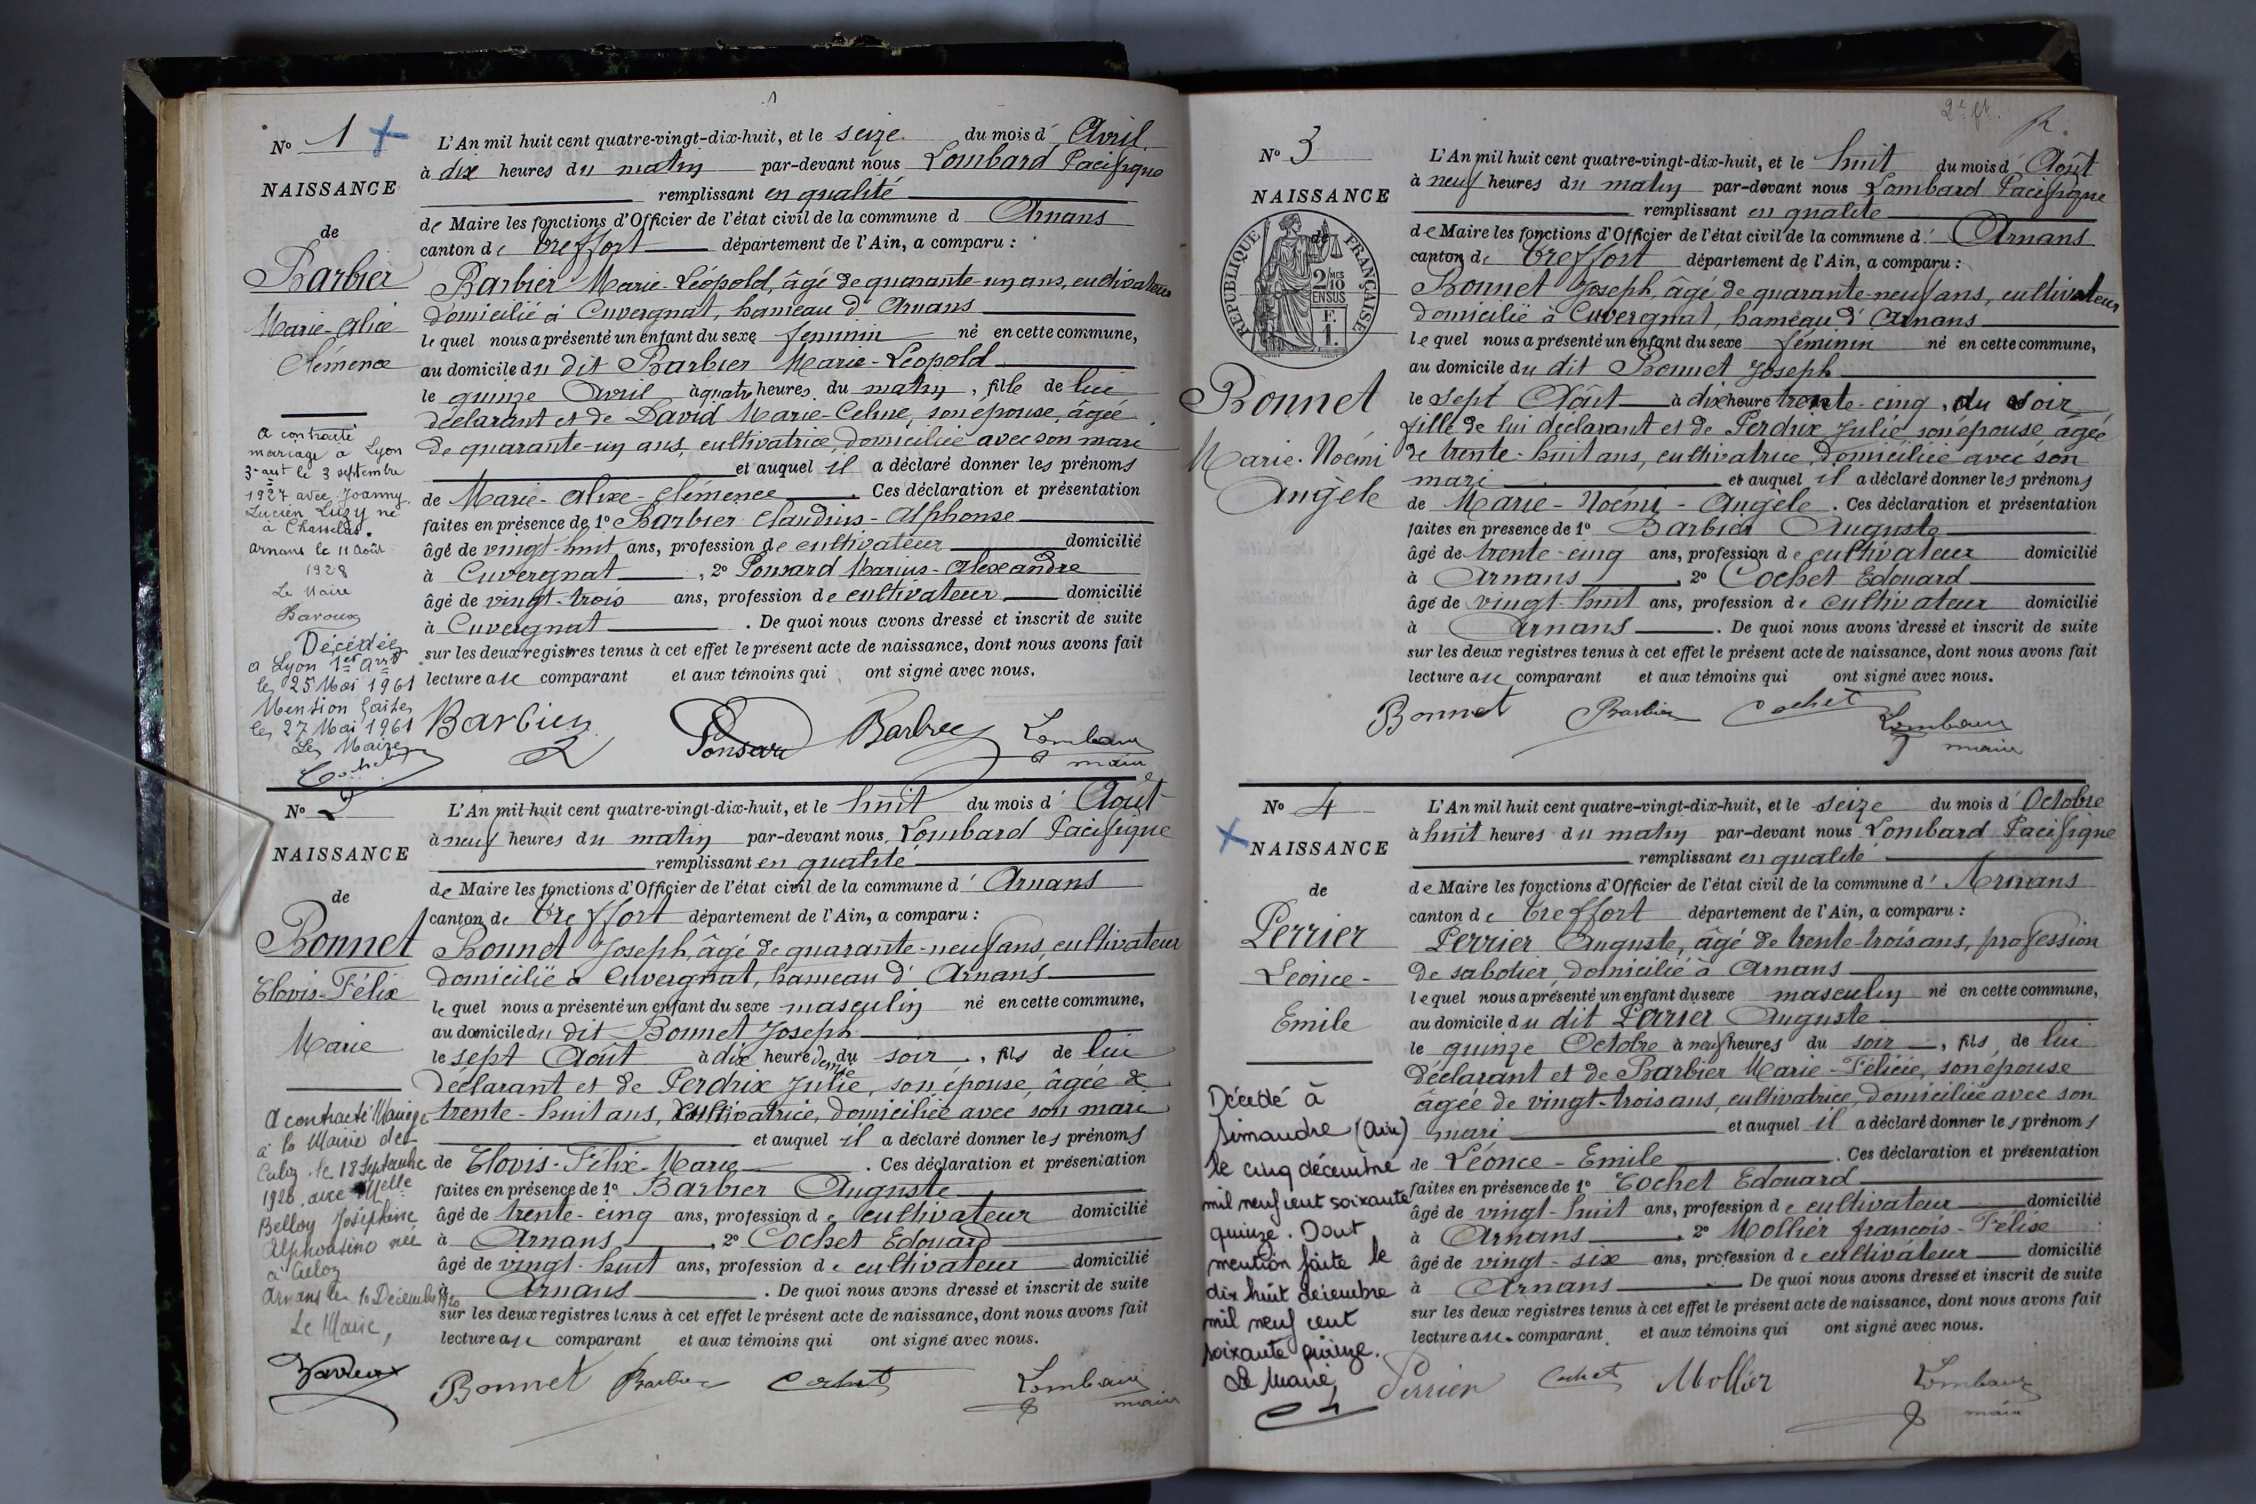 N° 1
NAISSANCE
de
Barbier
Marie-Alice
Clémence
a contracté
mariage à Lyon
3e art le 3 septembre
1927 avec Joanny
Lucien Luzy né
à Chasselas.
Arnans le 11 Août
1928
Le Maire
Décédée
à Lyon 1er Arrt
le 25 Mai 1961
Mention faite
le 27 Mai 1961
Le Maire
L'An mil huit cent quatre-vingt-dix-huit, et le seize du mois d' Avril
à dix heures du matin par-devant nous Lombard Pacifique
remplissant en qualité
de Maire les fonctions d'Officier de l'état civil de la commune d Arnans
canton de Treffort département de l'Ain, a comparu :
Barbier Marie-Léopold, âgé de quarante-un ans, cultivateur
domicilié à Cuvergnat, hameau d'Arnans
lequel nous a présenté un enfant du sexe feminin né en cette commune,
au domicile du dit Barbier Marie-Léopold
le quinze Avril à quatre heures du matin, fille de lui
déclarant et de David Marie-Celine, son épouse, âgée
de quarante-un ans, cultivatrice, domiciliée avec son mari
et auquel il a déclaré donner les prénoms
de Marie-Alice-Clémence. Ces déclaration et présentation
faites en présence de 1° Barbier Claudius-Alphonse
âgé de vingt-huit ans, profession de cultivateur domicilié
à Cuvergnat, 2° Ponsard Marius-Alexandre
âgé de vingt-trois ans, profession de cultivateur domicilié
à Cuvergnat. De quoi nous avons dressé et inscrit de suite
sur les deux registres tenus à cet effet le présent acte de naissance, dont nous avons fait
lecture au comparant et aux témoins qui ont signé avec nous.
Barbier Ponsard Barbier Lombard
maire
N° 2
NAISSANCE
de
Bonnet
Clovis-Félix
Marie
A contracté Mariage
à la Mairie de
Culoz le 18 Septembre
1920 avec Melle
Belloy Joséphine
Alphonsine née
à Culoz
Arnans le 10 Décembre 1920
Le Maire,
L'An mil huit cent quatre-vingt-dix-huit, et le huit du mois d' Août
à neuf heures du matin par-devant nous Lombard Pacifique
remplissant en qualité
de Maire les fonctions d'Officier de l'état civil de la commune d' Arnans
canton de Treffort département de l'Ain, a comparu :
Bonnet Joseph, âgé de quarante-neuf ans, cultivateur
domicilié à Cuvergnat, hameau d'Arnans
lequel nous a présenté un enfant du sexe masculin né en cette commune,
au domicile du dit Bonnet Joseph
le sept Août à dix heure demie du soir, fils de lui
déclarant et de Perdrix Julie, son épouse, âgée de
trente-huit ans, cultivatrice, domiciliée avec son mari
et auquel il a déclaré donner les prénoms
de Clovis-Félix-Marie. Ces déclaration et présentation
faites en présence de 1° Barbier Auguste
âgé de trente-cinq ans, profession de cultivateur domicilié
à Arnans, 2° Cochet Edouard
âgé de vingt-huit ans, profession de cultivateur domicilié
à Arnans. De quoi nous avons dressé et inscrit de suite
sur les deux registres tenus à cet effet le présent acte de naissance, dont nous avons fait
lecture au comparant et aux témoins qui ont signé avec nous.
Bonnet Barbier Cochet Lombard
maire
N° 3
NAISSANCE
de
RÉPUBLIQUE FRANÇAISE
2/10 MES
EN SUS
F.
1.
Bonnet
Marie-Noémi
Angèle
L'An mil huit cent quatre-vingt-dix-huit, et le huit du mois d' Août
à neuf heures du matin par-devant nous Lombard Pacifique
remplissant en qualité
de Maire les fonctions d'Officier de l'état civil de la commune d' Arnans
canton de Treffort département de l'Ain, a comparu :
Bonnet Joseph, âgé de quarante-neuf ans, cultivateur
domicilié à Cuvergnat, hameau d'Arnans
lequel nous a présenté un enfant du sexe féminin né en cette commune,
au domicile du dit Bonnet Joseph
le sept Août à dix heure trente-cinq, du soir
fille de lui déclarant et de Perdrix Julie son épouse âgée
de trente-huit ans, cultivatrice, domiciliée avec son
mari et auquel il a déclaré donner les prénoms
de Marie-Noémi-Angèle. Ces déclaration et présentation
faites en présence de 1° Barbier Auguste
âgé de trente-cinq ans, profession de cultivateur domicilié
à Arnans, 2° Cochet Edouard
âgé de vingt-huit ans, profession de cultivateur domicilié
à Arnans. De quoi nous avons dressé et inscrit de suite
sur les deux registres tenus à cet effet le présent acte de naissance, dont nous avons fait
lecture au comparant et aux témoins qui ont signé avec nous.
Bonnet Barbier Cochet Lombard
maire
N° 4
NAISSANCE
de
Perrier
Léonce-
Emile
Décédé à
Simandre (Ain)
le cinq décembre
mil neuf cent soixante
quinze. Dont
mention faite le
dix huit décembre
mil neuf cent
soixante quinze.
Le Maire,
L'An mil huit cent quatre-vingt-dix-huit, et le seize du mois d' Octobre
à huit heures du matin par-devant nous Lombard Pacifique
remplissant en qualité
de Maire les fonctions d'Officier de l'état civil de la commune d' Arnans
canton de Treffort département de l'Ain, a comparu :
Perrier Auguste, âgé de trente-trois ans, profession
de sabotier domicilié à Arnans
lequel nous a présenté un enfant du sexe masculin né en cette commune,
au domicile du dit Perrier Auguste
le quinze Octobre à neuf heures du soir, fils de lui
déclarant et de Barbier Marie-Félicie, son épouse
âgée de vingt-trois ans, cultivatrice, domiciliée avec son
mari et auquel il a déclaré donner les prénoms
de Léonce-Emile. Ces déclaration et présentation
faites en présence de 1° Cochet Edouard
âgé de vingt-huit ans, profession de cultivateur domicilié
à Arnans, 2° Mollier françois-Félix
âgé de vingt-six ans, profession de cultivateur domicilié
à Arnans De quoi nous avons dressé et inscrit de suite
sur les deux registres tenus à cet effet le présent acte de naissance, dont nous avons fait
lecture au comparant et aux témoins qui ont signé avec nous.
Perrier Cochet Mollier Lombard
maire